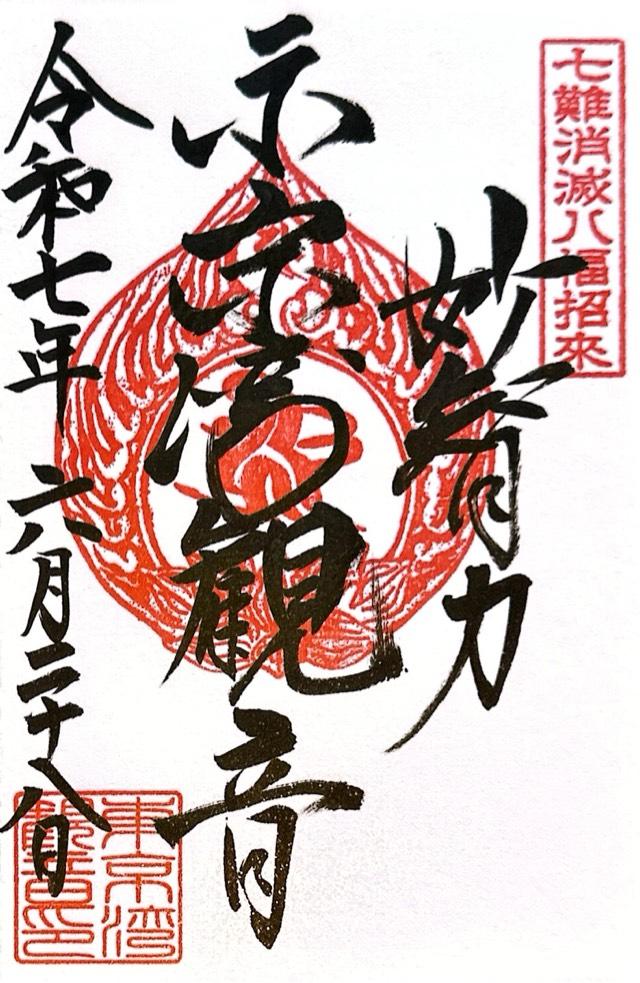 七難消滅八福招來
妙智力
東京湾觀音
令和七年六月二十八日
東京湾
觀音印